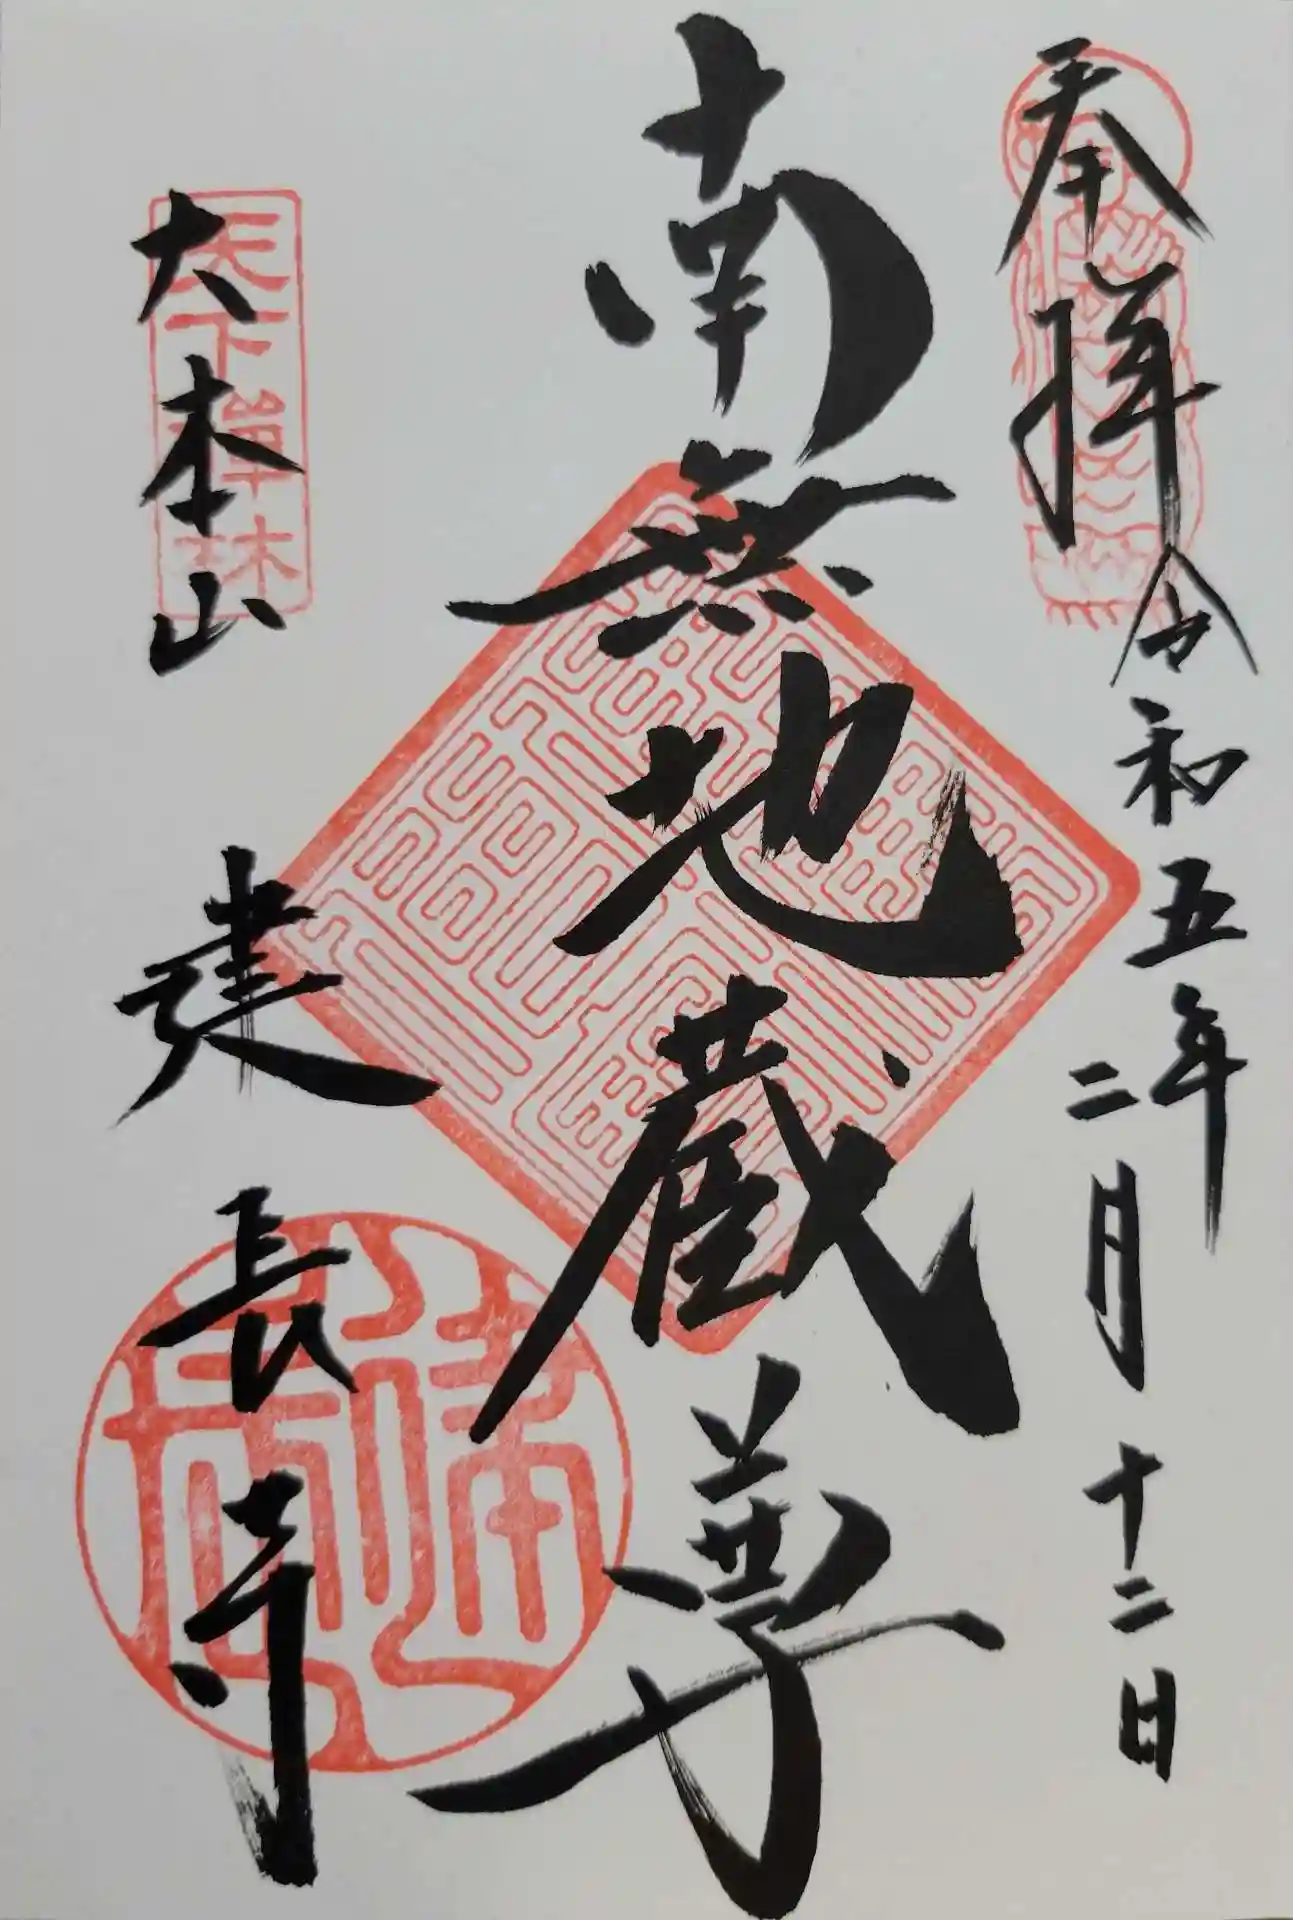 奉拝
令和五年
二月十二日
南無地蔵尊
天下禅林
大本山
建長寺